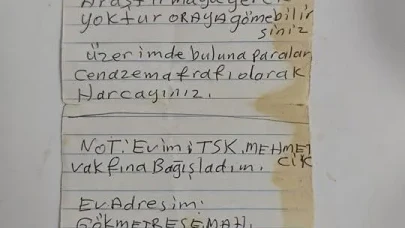 Araştırmaya gerek
yoktur ORAYA gömebilir
siniz
üzerimde buluna paraları
cendzema frafı olarak
Harcayınız.
NOT: Evimi TSK. MEHMET
CİK
vakfına Bağışladım.
EV Adresim:
GÖKMEŞE MAH.